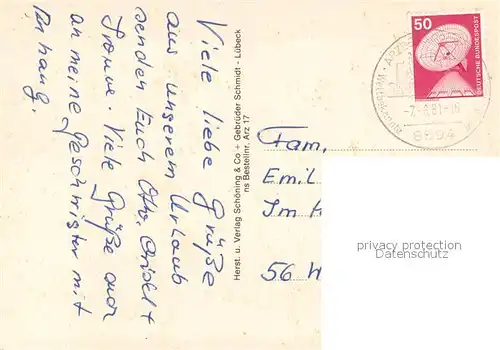 Viele liebe Grüße
aus unserem Urlaub
senden Euch Otto,
Viele Grüße auch
an meine Geschwister mit
Anhang.
Herst. u. Verlag Schöning & Co + Gebrüder Schmidt - Lübeck
ns Bestellnr. Arz 17
50
DEUTSCHE BUNDESPOST
8594
Fam.
Emil
Im
56 W
privacy protection
Datenschutz